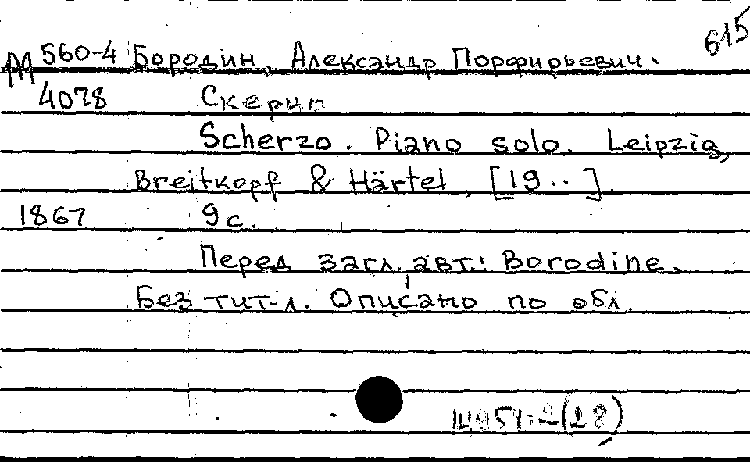 615
М 560-4 Бородин, Александр Порфирьевич.
4078 Скерцо
Scherzo. Piano solo. Leipzig,
Breitkopf & Härtel, [19..].
1867 9 с.
Перед загл. авт.: Borodine.
Без тит-л. Описано по обл.